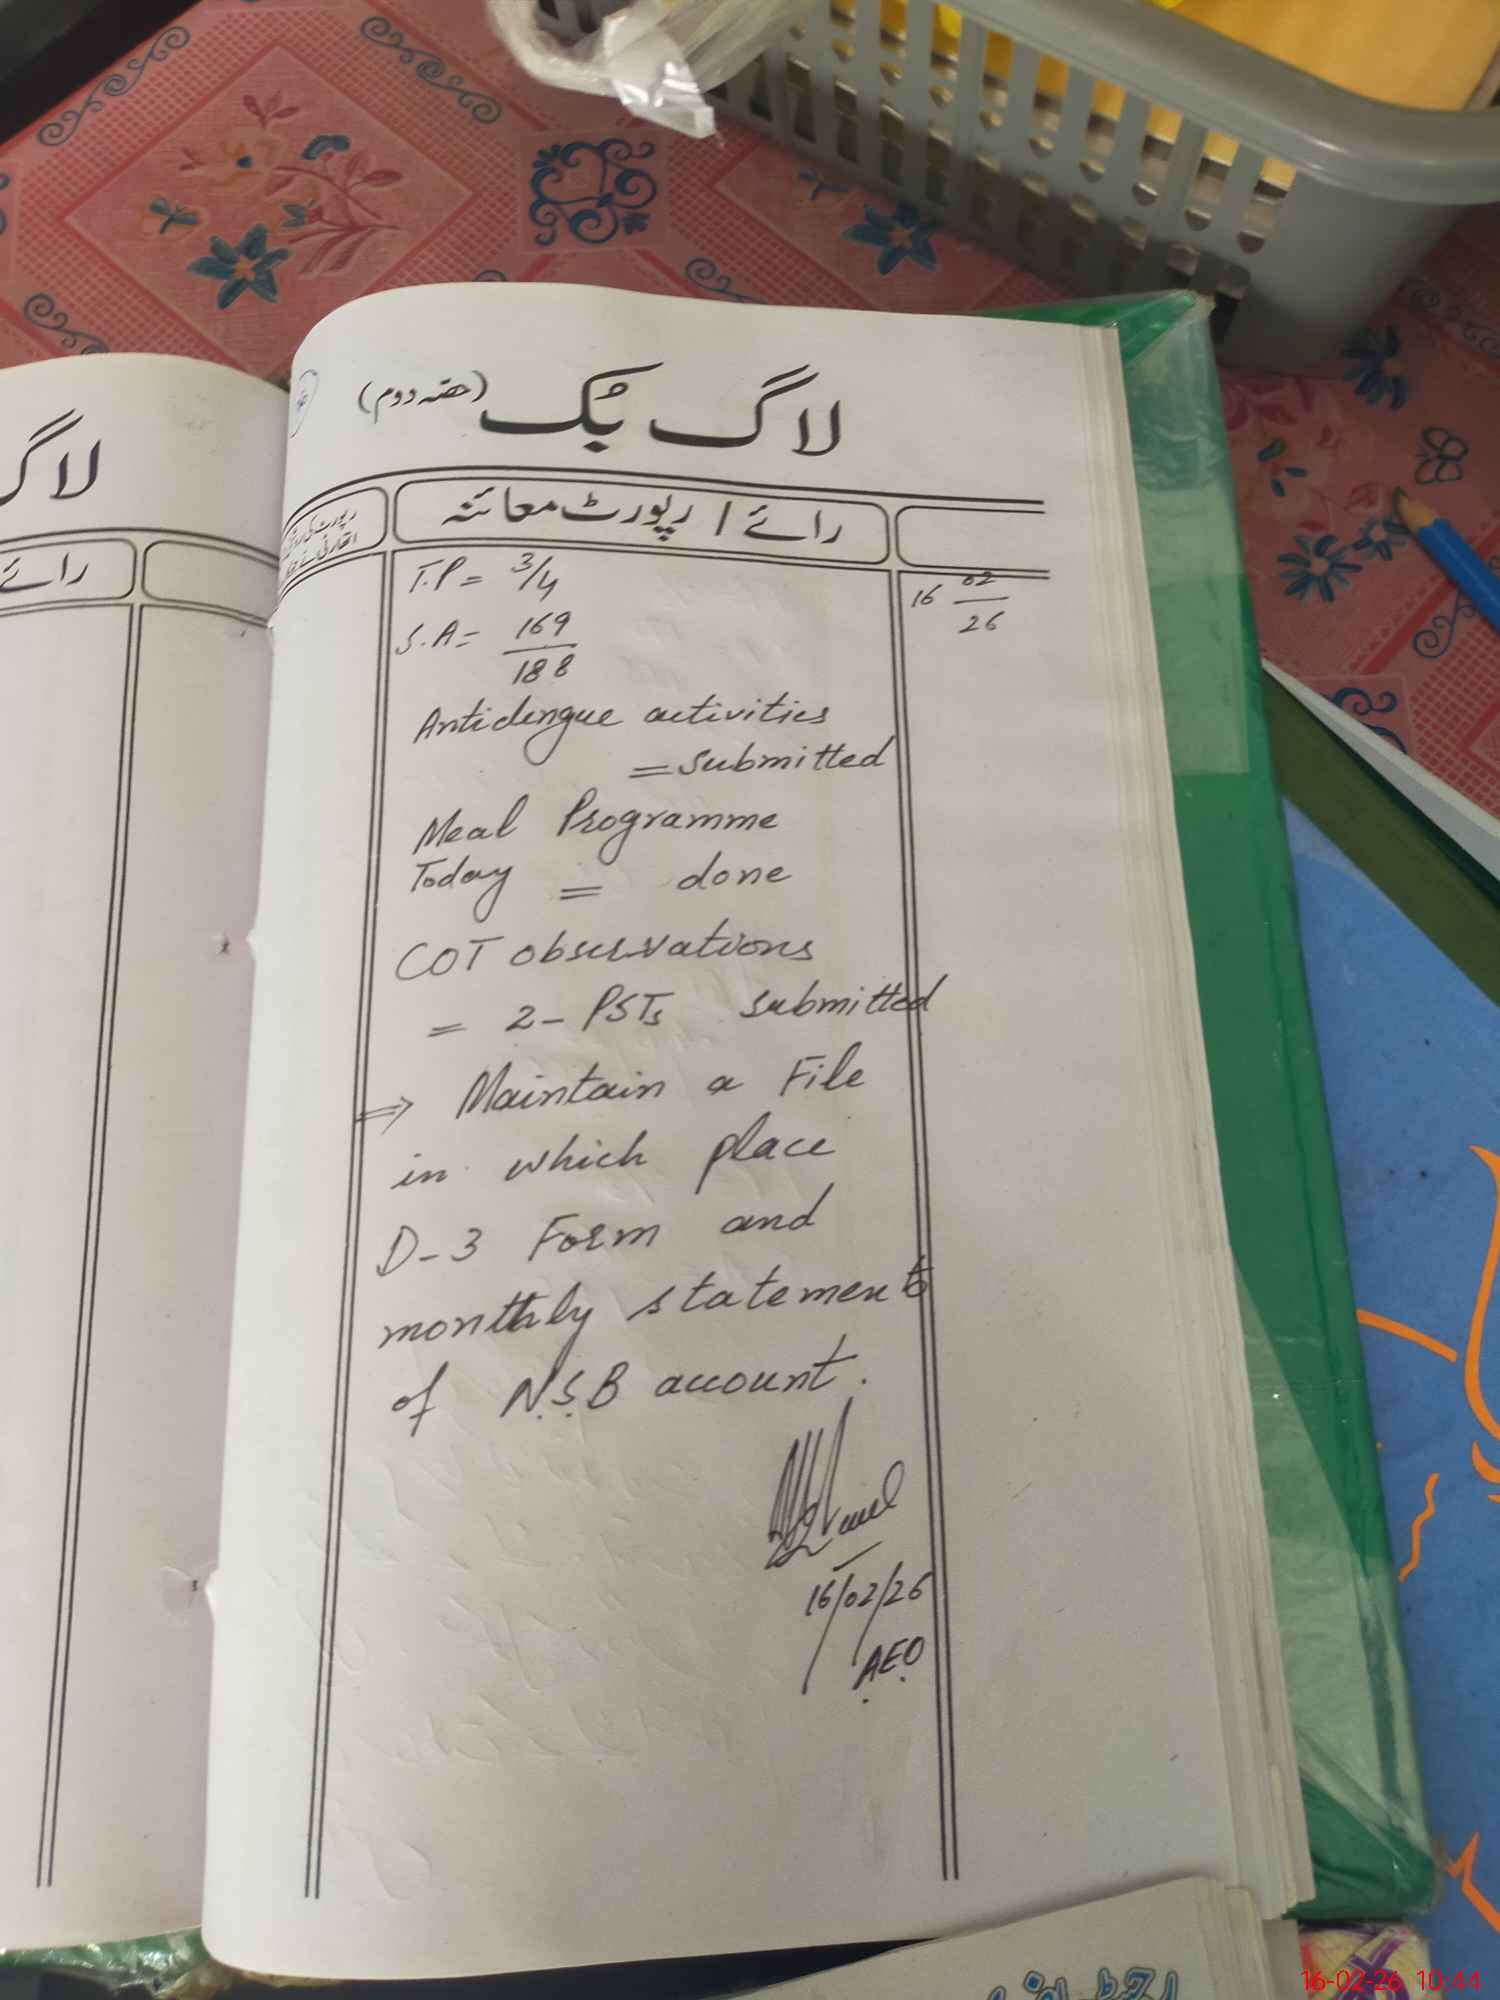 لاگ بُک (حصہ دوم)
رائے / رپورٹ معائنہ
رپورٹ کی
16 02/26
T.P = 3/4
S.A = 169/188
Antidengue activities
= submitted
Meal Programme
Today = done
COT observations
= 2- PSTs submitted
⇒ Maintain a File
in which place
D-3 Form and
monthly statements
of N.S.B account.
16/02/26
AEO
لاگ
رائے
16-02-26 10:44